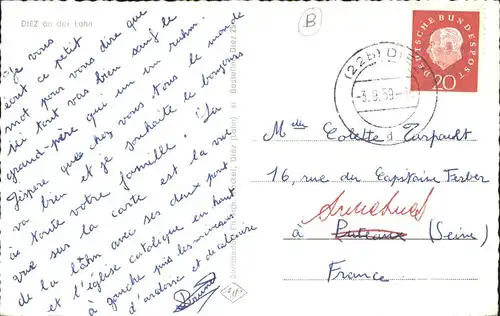 DIEZ an der Lahn
Je vous
écris ce petit
mot pour vous dire que
ici tout vas bien sauf le
grand-père qui a un rhum.
J'espère que chez vous tous le monde
va bien et je souhaite le bonjour
à toute votre famille. La
vue sur la carte est la vue
de la Lahn avec ses deux pont
et l'église catolique en haut
à gauche puis les
d'ardoise et de calcaire
Bruno
Diez (Lahn)
Diez 25
(22b) DI
-3.9.59-
DEUTSCHE BUNDESPOST
20
B
Colette d Tarpault
16, rue du Capitaine Ferber
à Puteaux (Seine)
France